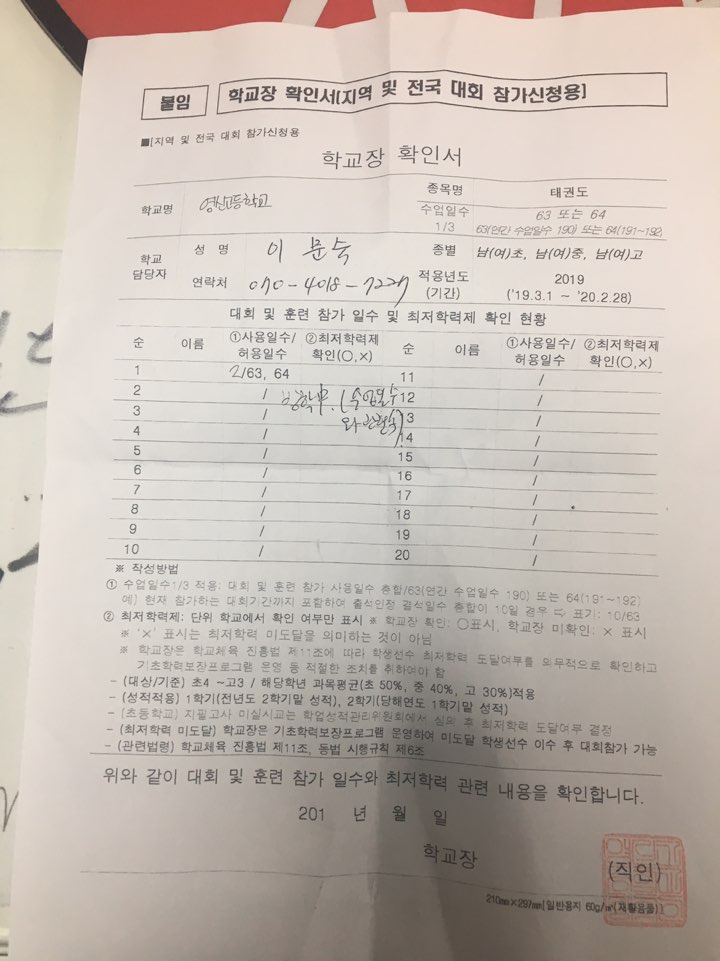 붙임
학교장 확인서[지역 및 전국 대회 참가신청용]
■[지역 및 전국 대회 참가신청용
학교장 확인서
학교명 영신고등학교 종목명 태권도
수업일수 1/3 63 또는 64
63(연간 수업일수 190) 또는 64(191~192)
학교 담당자 성 명 이 문숙 종별 남(여)초, 남(여)중, 남(여)고
연락처 070-4018-7227 적용년도 (기간) 2019
('19.3.1 ~ '20.2.28)
대회 및 훈련 참가 일수 및 최저학력제 확인 현황
순 이름 ①사용일수/허용일수 ②최저학력제 확인(○,×) 순 이름 ①사용일수/허용일수 ②최저학력제 확인(○,×)
1 2/63, 64 11 /
2 / (수업일수 12 /
3 / 13 /
4 / 14 /
5 / 15 /
6 / 16 /
7 / 17 /
8 / 18 /
9 / 19 /
10 / 20 /
※ 작성방법
① 수업일수1/3 적용: 대회 및 훈련 참가 사용일수 총합/63(연간 수업일수 190) 또는 64(191~192)
예) 현재 참가하는 대회기간까지 포함하여 출석인정 결석일수 총합이 10일 경우 ⇨ 표기: 10/63
② 최저학력제: 단위 학교에서 확인 여부만 표시 ※ 학교장 확인: ○표시, 학교장 미확인: × 표시
※ '×' 표시는 최저학력 미도달을 의미하는 것이 아님
※ 학교장은 학교체육 진흥법 제11조에 따라 학생선수 최저학력 도달여부를 의무적으로 확인하고
기초학력보장프로그램 운영 등 적절한 조치를 취하여야 함
- (대상/기준) 초4 ~고3 / 해당학년 과목평균(초 50%, 중 40%, 고 30%)적용
- (성적적용) 1학기(전년도 2학기말 성적), 2학기(당해연도 1학기말 성적)
- (초등학교) 지필고사 미실시교는 학업성적관리위원회에서 심의 후 최저학력 도달여부 결정
- (최저학력 미도달) 학교장은 기초학력보장프로그램 운영하여 미도달 학생선수 이수 후 대회참가 가능
- (관련법령) 학교체육 진흥법 제11조, 동법 시행규칙 제6조
위와 같이 대회 및 훈련 참가 일수와 최저학력 관련 내용을 확인합니다.
201 년 월 일
학교장 (직인)
210㎜×297㎜[일반용지 60g/㎡(재활용품)]